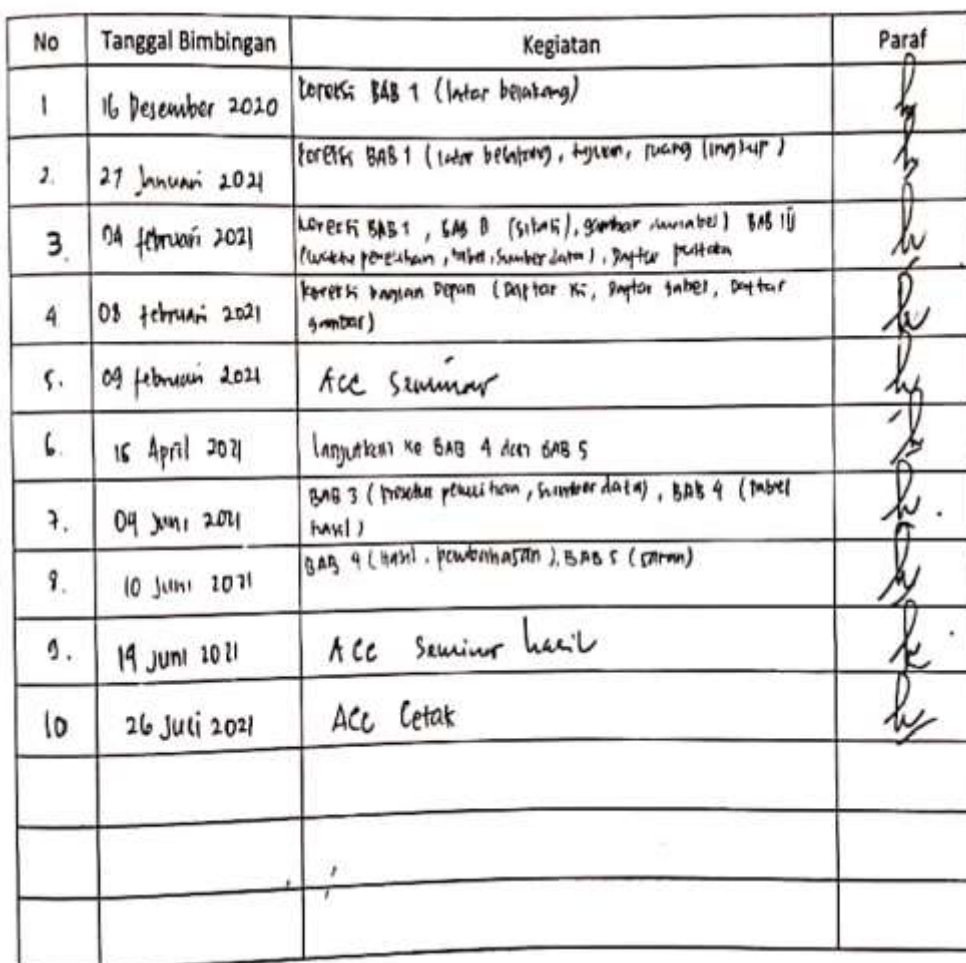 No Tanggal Bimbingan Kegiatan Paraf
1 16 Desember 2020 koreksi BAB 1 (latar belakang)
2. 27 Januari 2021 koreksi BAB 1 (latar belakang, tujuan, ruang lingkup)
3. 04 februari 2021 koreksi BAB 1, BAB II (sitasi), gambar BAB III
(waktu penelitian, tabel, sumber data), Daftar pustaka
4 08 februari 2021 koreksi bagian Depan (Daftar isi, Daftar tabel, Daftar
gambar)
5. 09 februari 2021 ACC Seminar
6. April 2021 lanjutkan ke BAB 4 dan BAB 5
7. 04 Juni 2021 BAB 3 (sumber data), BAB 4 (tabel
hasil)
8. 10 Juni 2021 BAB 4 (hasil, pembahasan), BAB 5 (saran)
9. Juni 2021 ACC Seminar hasil
10 26 Juli 2021 ACC Cetak